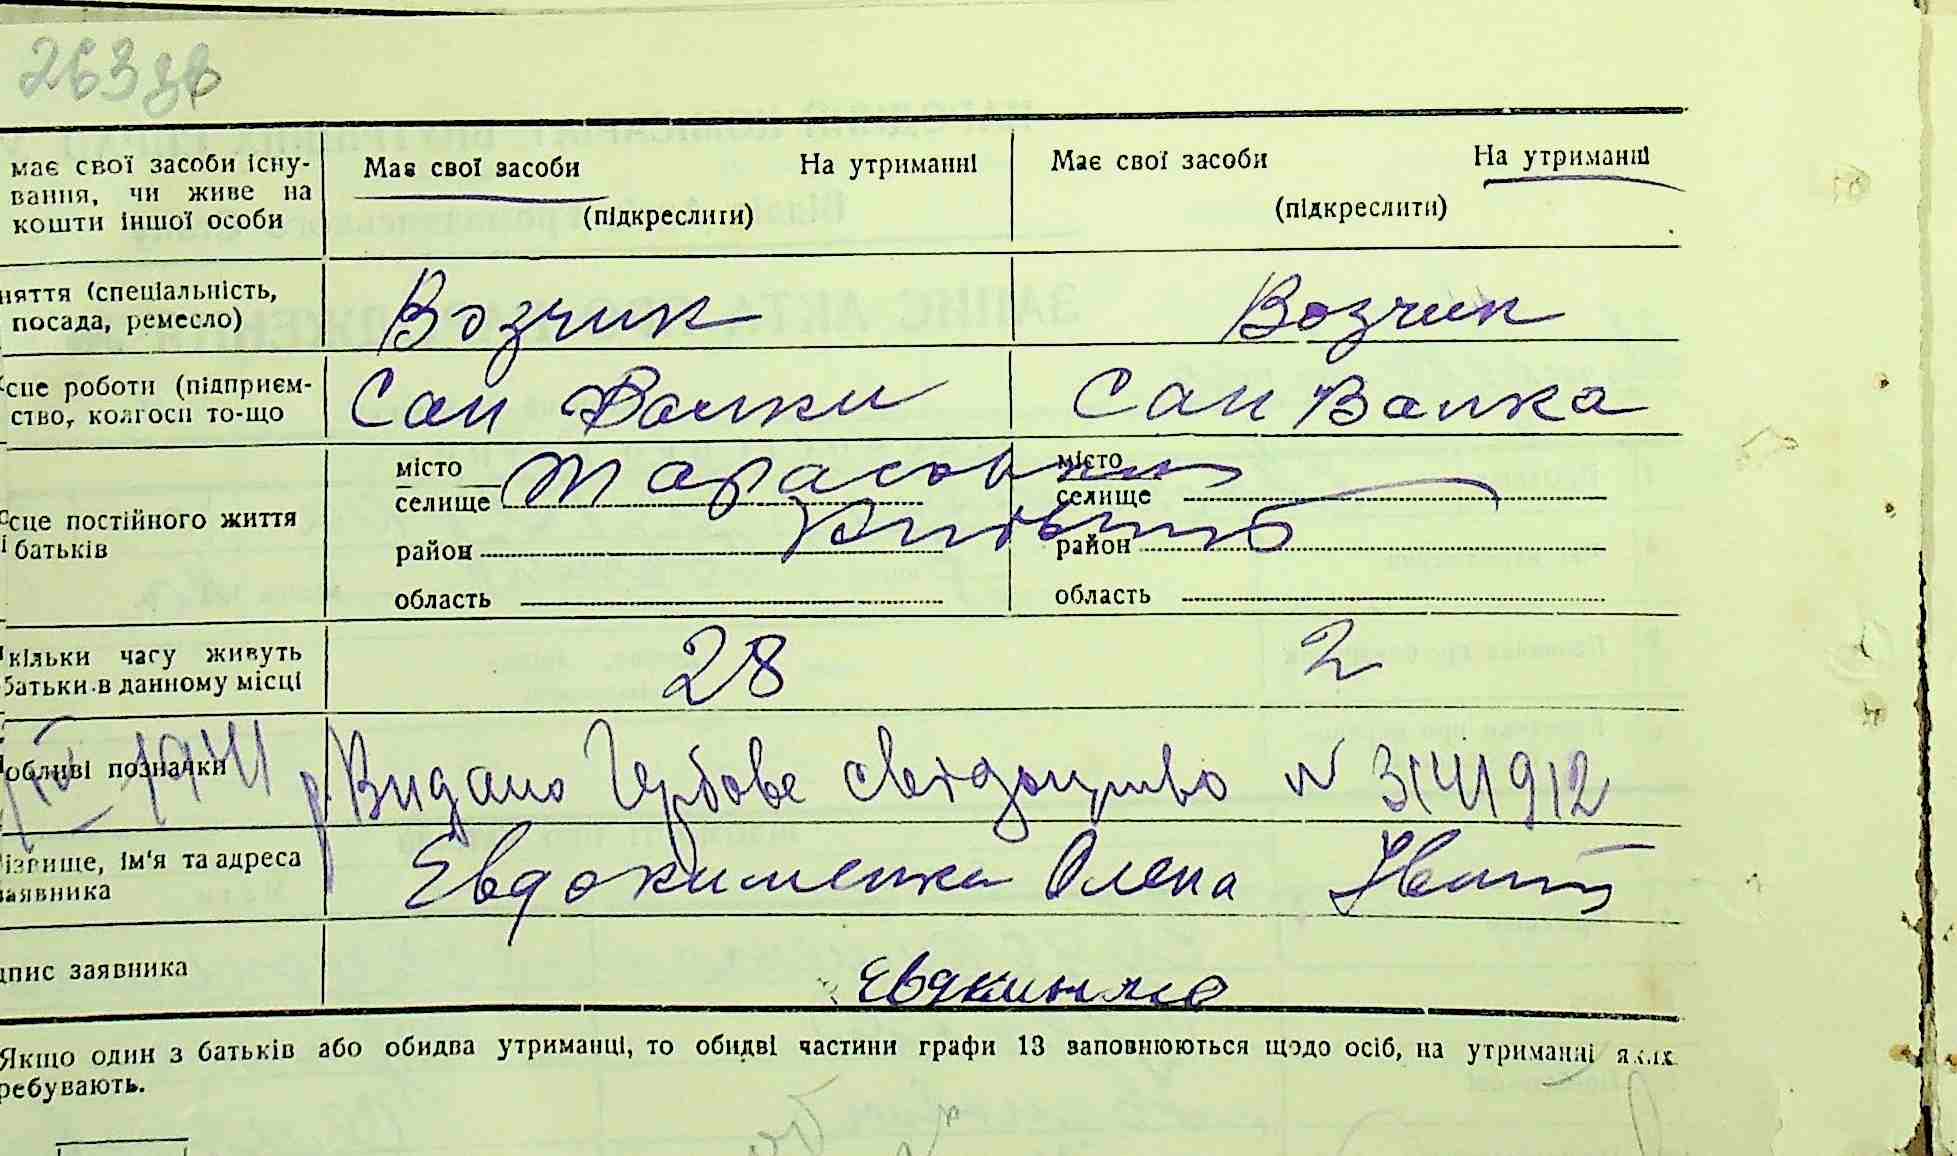 263 зв
має свої засоби існу- Має свої засоби На утриманні Має свої засоби На утриманні
вання, чи живе на
кошти іншої особи (підкреслити) (підкреслити)
няття (спеціальність, Возчик Возчик
посада, ремесло)
сце роботи (підприєм- Сан Валки Сан Валка
ство, колгосп то-що
місто місто
селище Тарасовка селище
сце постійного життя
батьків
район район
область область
кільки часу живуть 28 2
батьки в данному місці
обливі позначки Видано Гербове свідоцтво № 3141912
ізвище, ім'я та адреса Евдокименко Олена
заявника
дпис заявника
Якщо один з батьків або обидва утриманці, то обидві частини графи 13 заповнюються щодо осіб, на утриманні яких
ребувають.